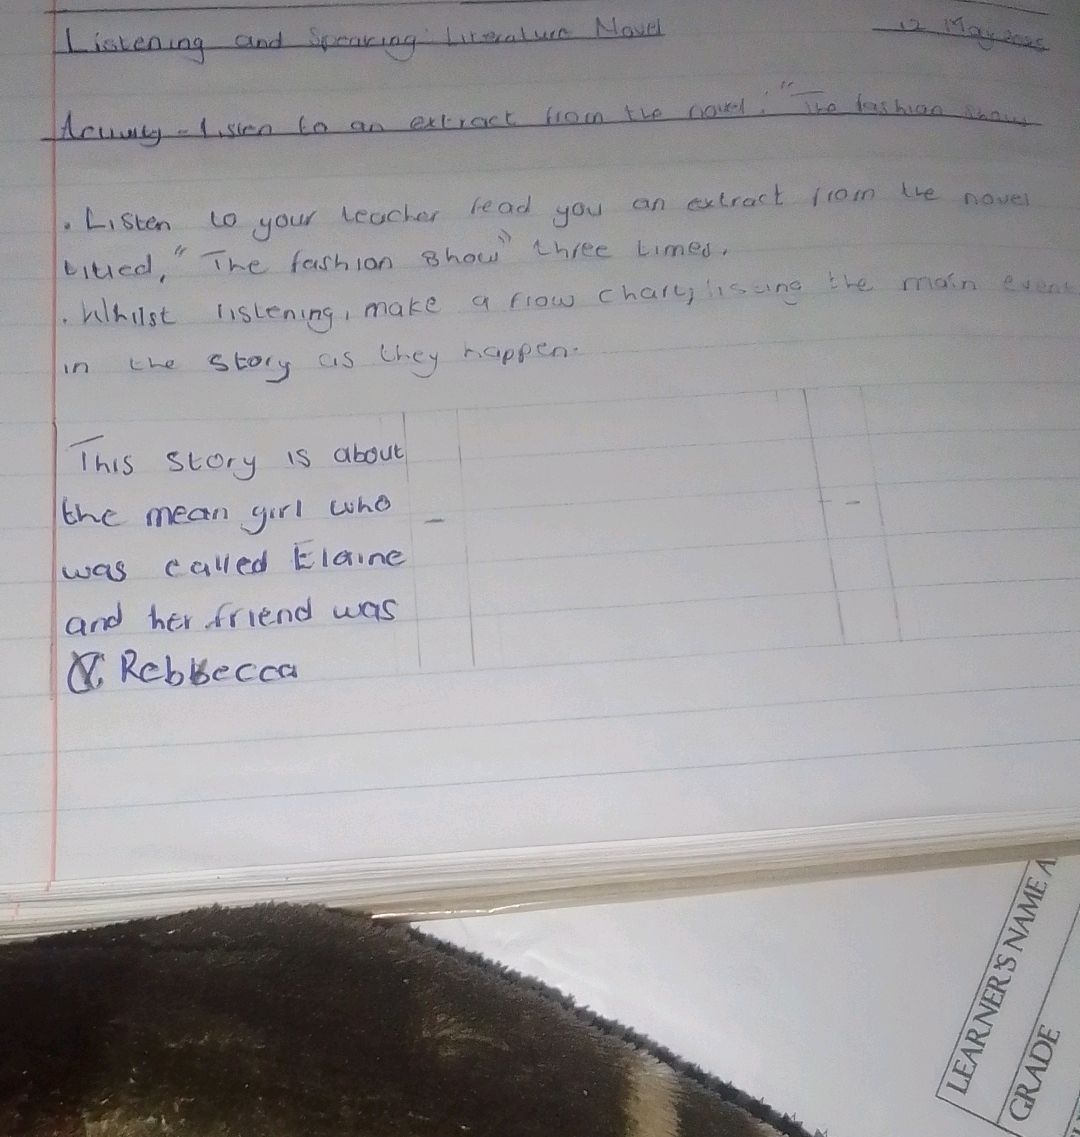 Listening and Speaking: Literature Novel
12 May 2025
Activity - Listen to an extract from the novel: "The fashion show
. Listen to your teacher read you an extract from the novel
titled, "The fashion show" three times.
. Whilst listening, make a flow chart, listing the main event
in the story as they happen.
This story is about
the mean girl who
was called Elaine
and her friend was
Rebbecca
LEARNER'S NAME
GRADE